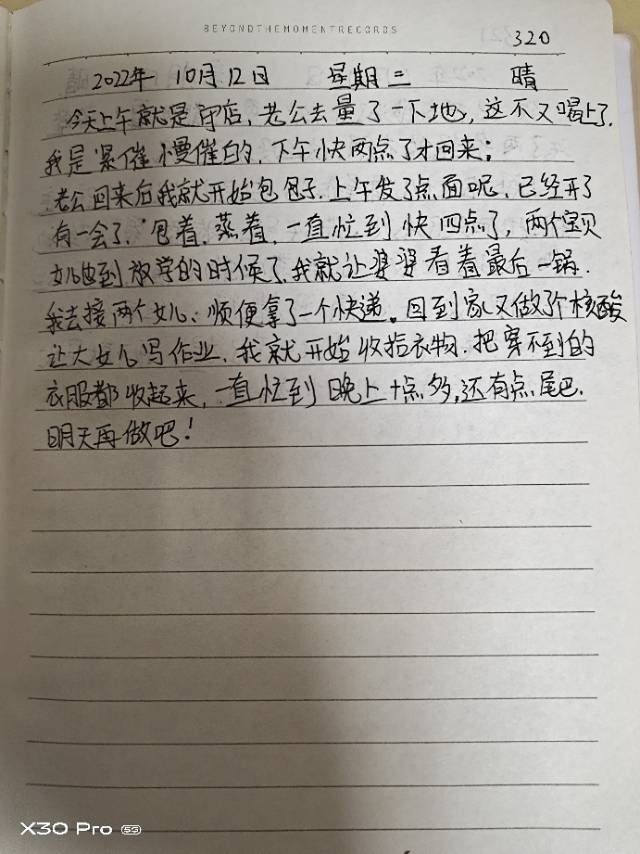 BEYONDTHEMOMENTRECORDS
320
2022年 10月12日 星期二 晴
今天上午就是守店，老公去量了一下地，这不又喝上了，
我是紧催慢催的，下午快两点了才回来；
老公回来后我就开始包包子，上午发了点面呢，已经开了
有一会了，包着，蒸着，一直忙到快四点了，两个宝贝
女儿也到放学的时候了，我就让婆婆看着最后一锅，
我去接两个女儿、顺便拿了一个快递。回到家又做了个核酸
让大女儿写作业，我就开始收拾衣物，把穿不到的
衣服都收起来，一直忙到晚上十点多，还有点尾巴，
明天再做吧！
X30 Pro 5G